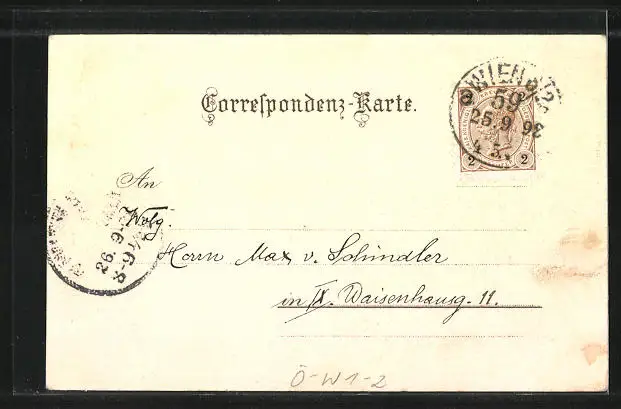 Correspondenz-Karte.
WIEN
59
25.9.98
4-5.
2 2
An
Wolg.
Herrn Max v. Schindler
in IX. Waisenhausg. 11.
26. 9.
8-9
Ö-W1-2